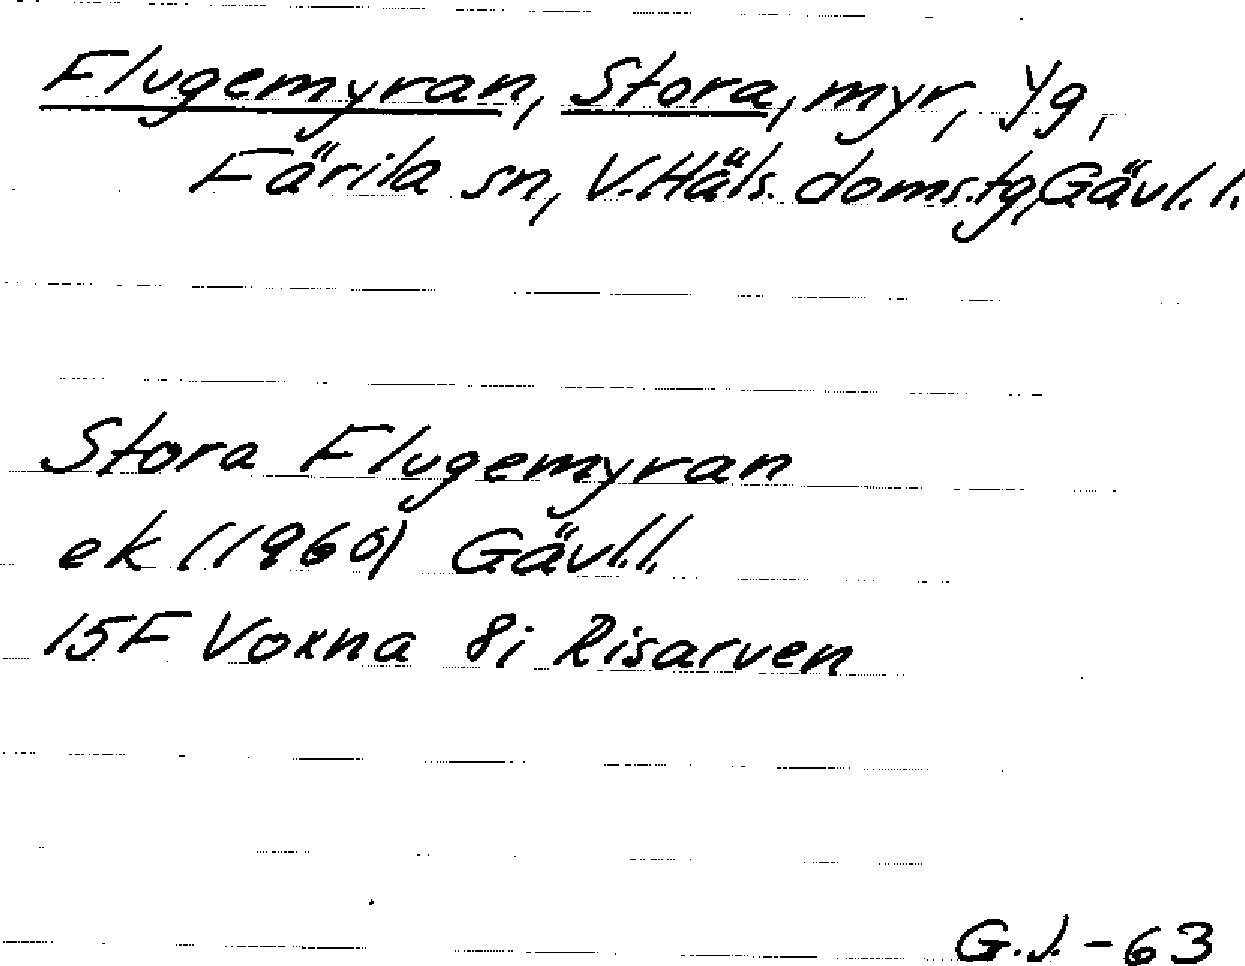 Flugemyran, Stora, myr, yg,
Färila sn, V. Häls. doms.tg, Gävl. l.
Stora Flugemyran
ek (1960) Gävl. l.
15F Voxna 8i Risarven
G.J. - 63